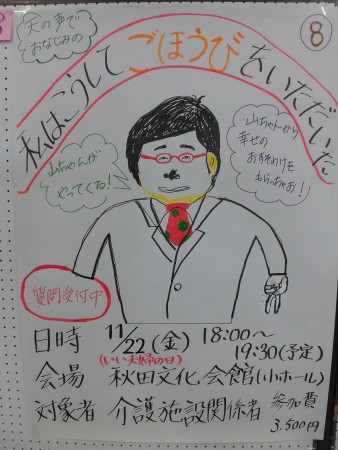 天の声で
おなじみの
⑧
私はこうして ごほうび をいただいた
山ちゃんが
やってくる!
山ちゃんから
幸せの
おすそわけを
もらっちゃお!
質問受付中
日時 11/22(金) 18:00〜
(いい夫婦の日) 19:30(予定)
会場 秋田文化会館(小ホール)
対象者 介護施設関係者 参加費
3,500円